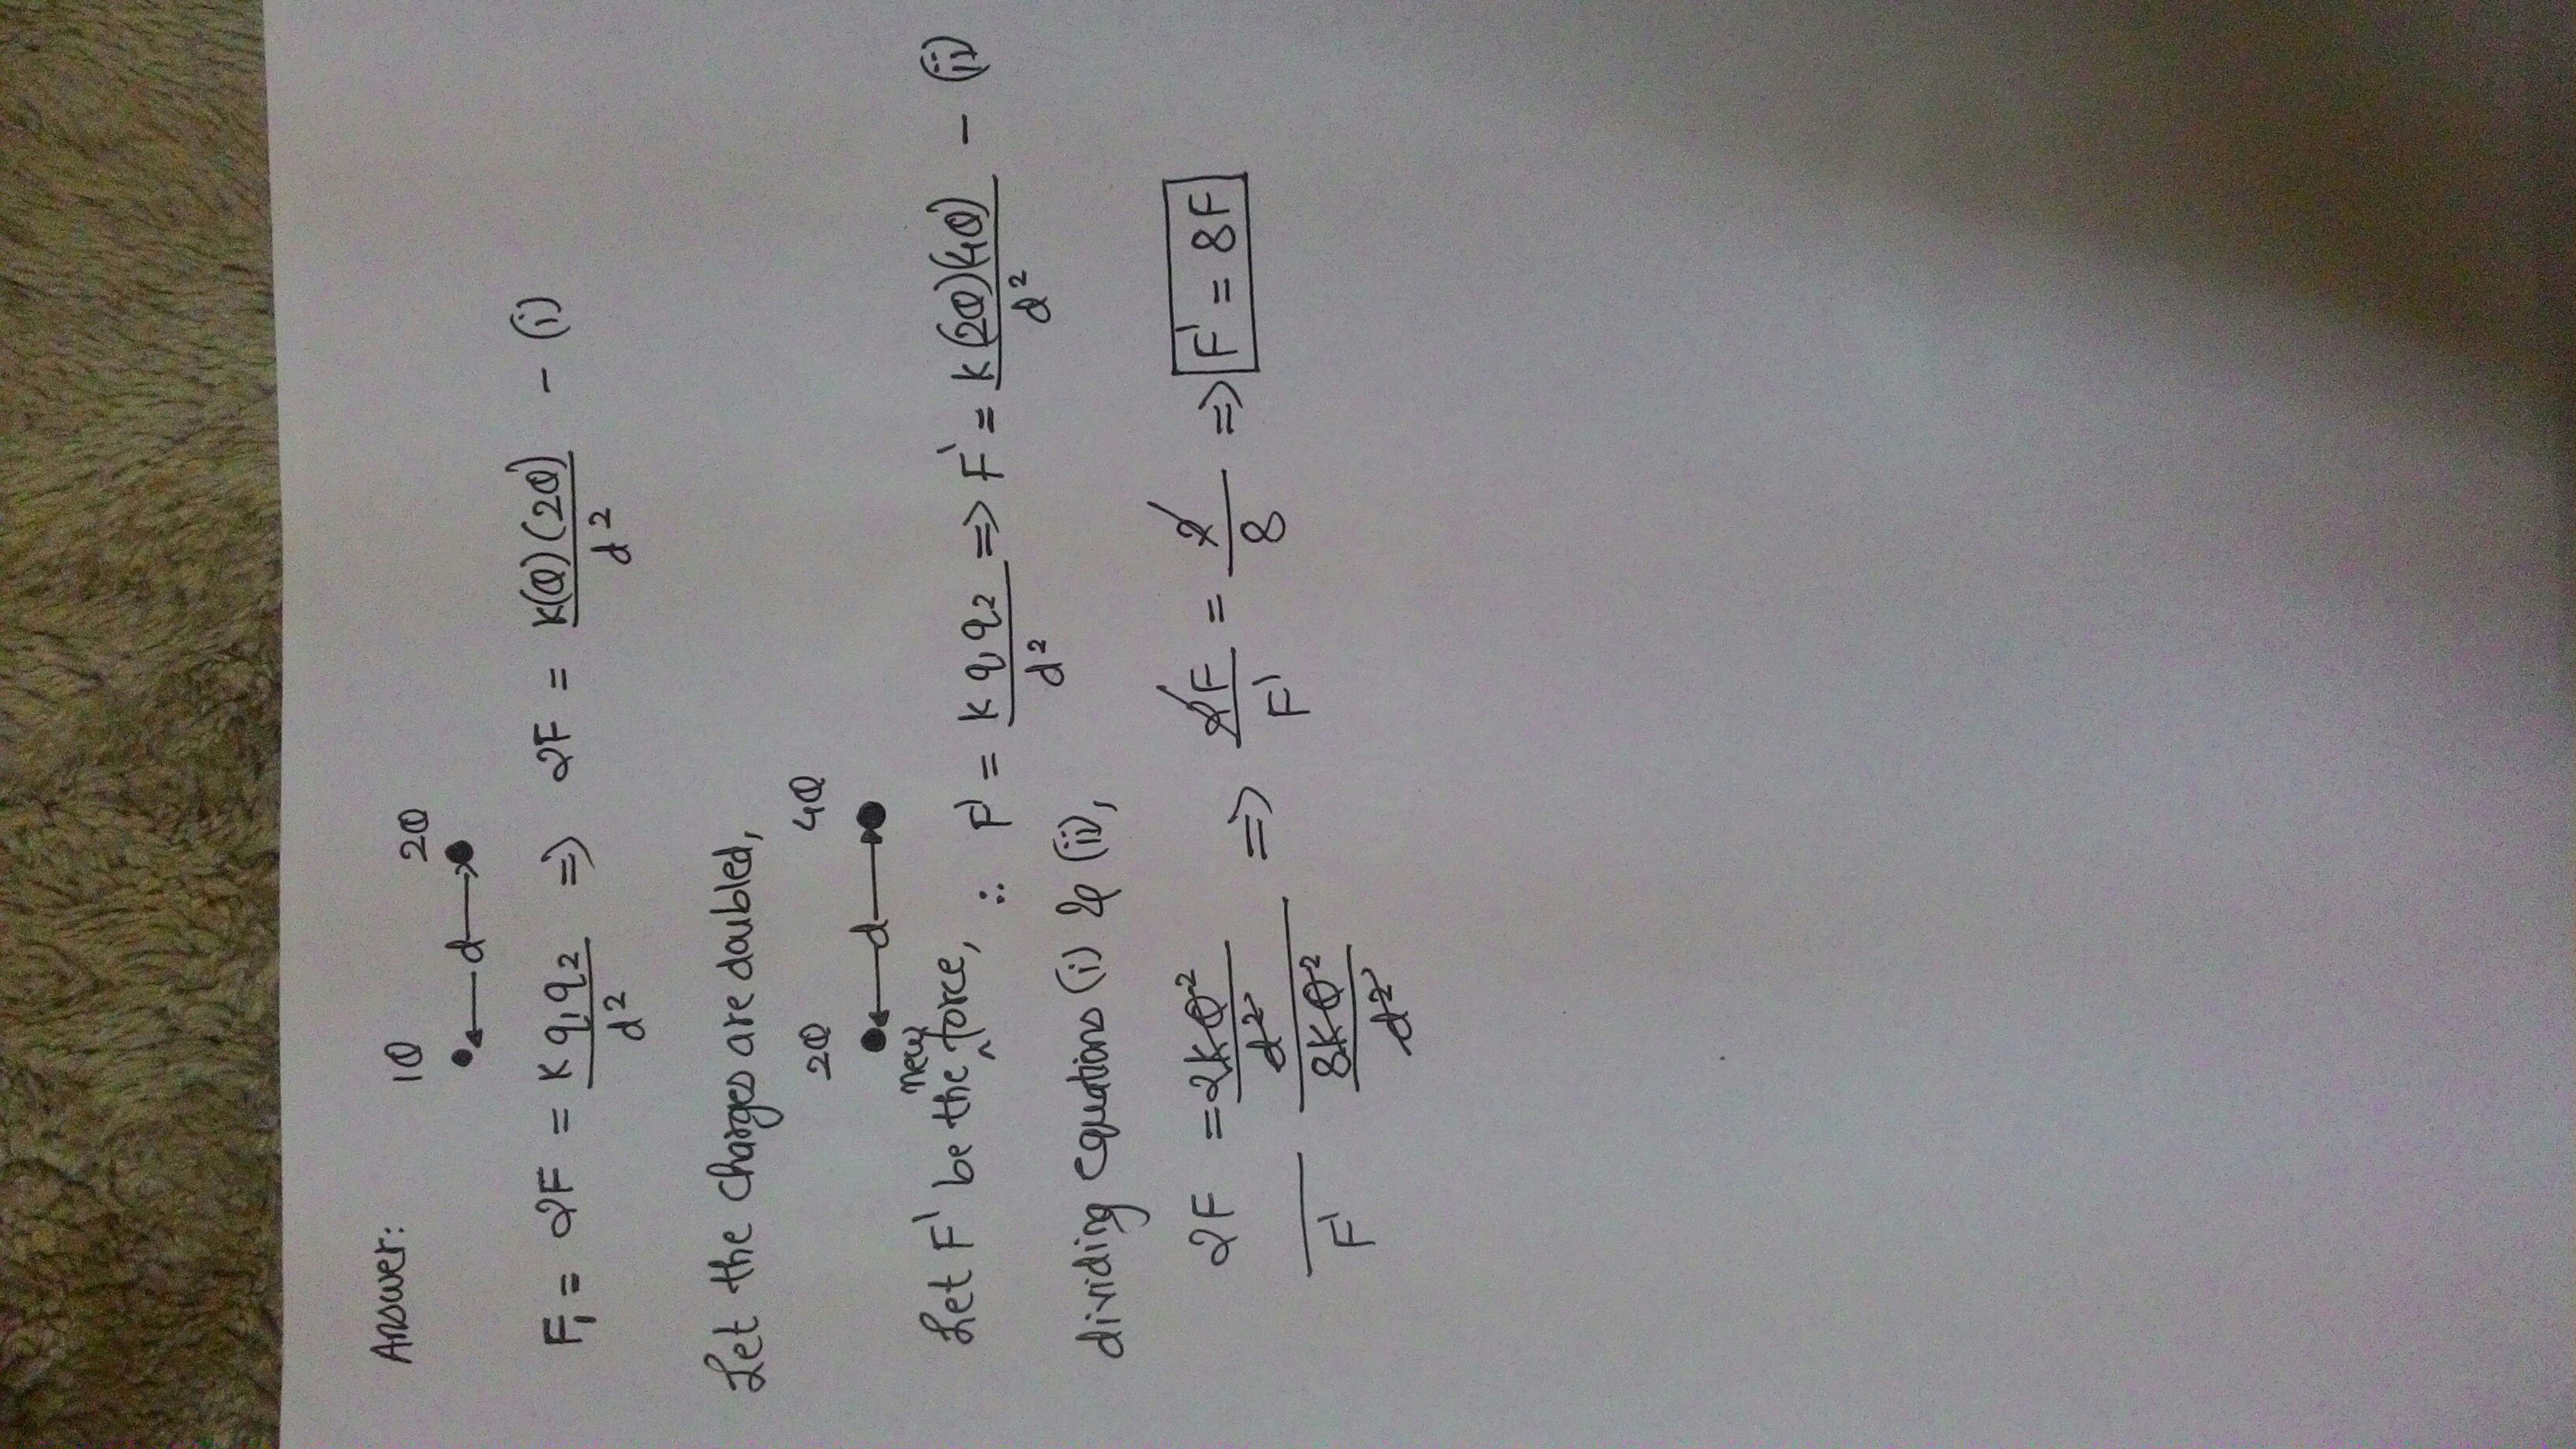 Answer:
1Q 2Q
d
F₁ = 2F = K q₁ q₂ / d² => 2F = K(Q)(2Q) / d² - (i)
Let the charges are doubled,
2Q 4Q
d
Let F' be the new force, ∴ F' = K q₁ q₂ / d² => F' = K(2Q)(4Q) / d² - (ii)
dividing equations (i) & (ii),
2F / F' = (2KQ² / d²) / (8KQ² / d²) => 2F / F' = 2 / 8 => F' = 8F